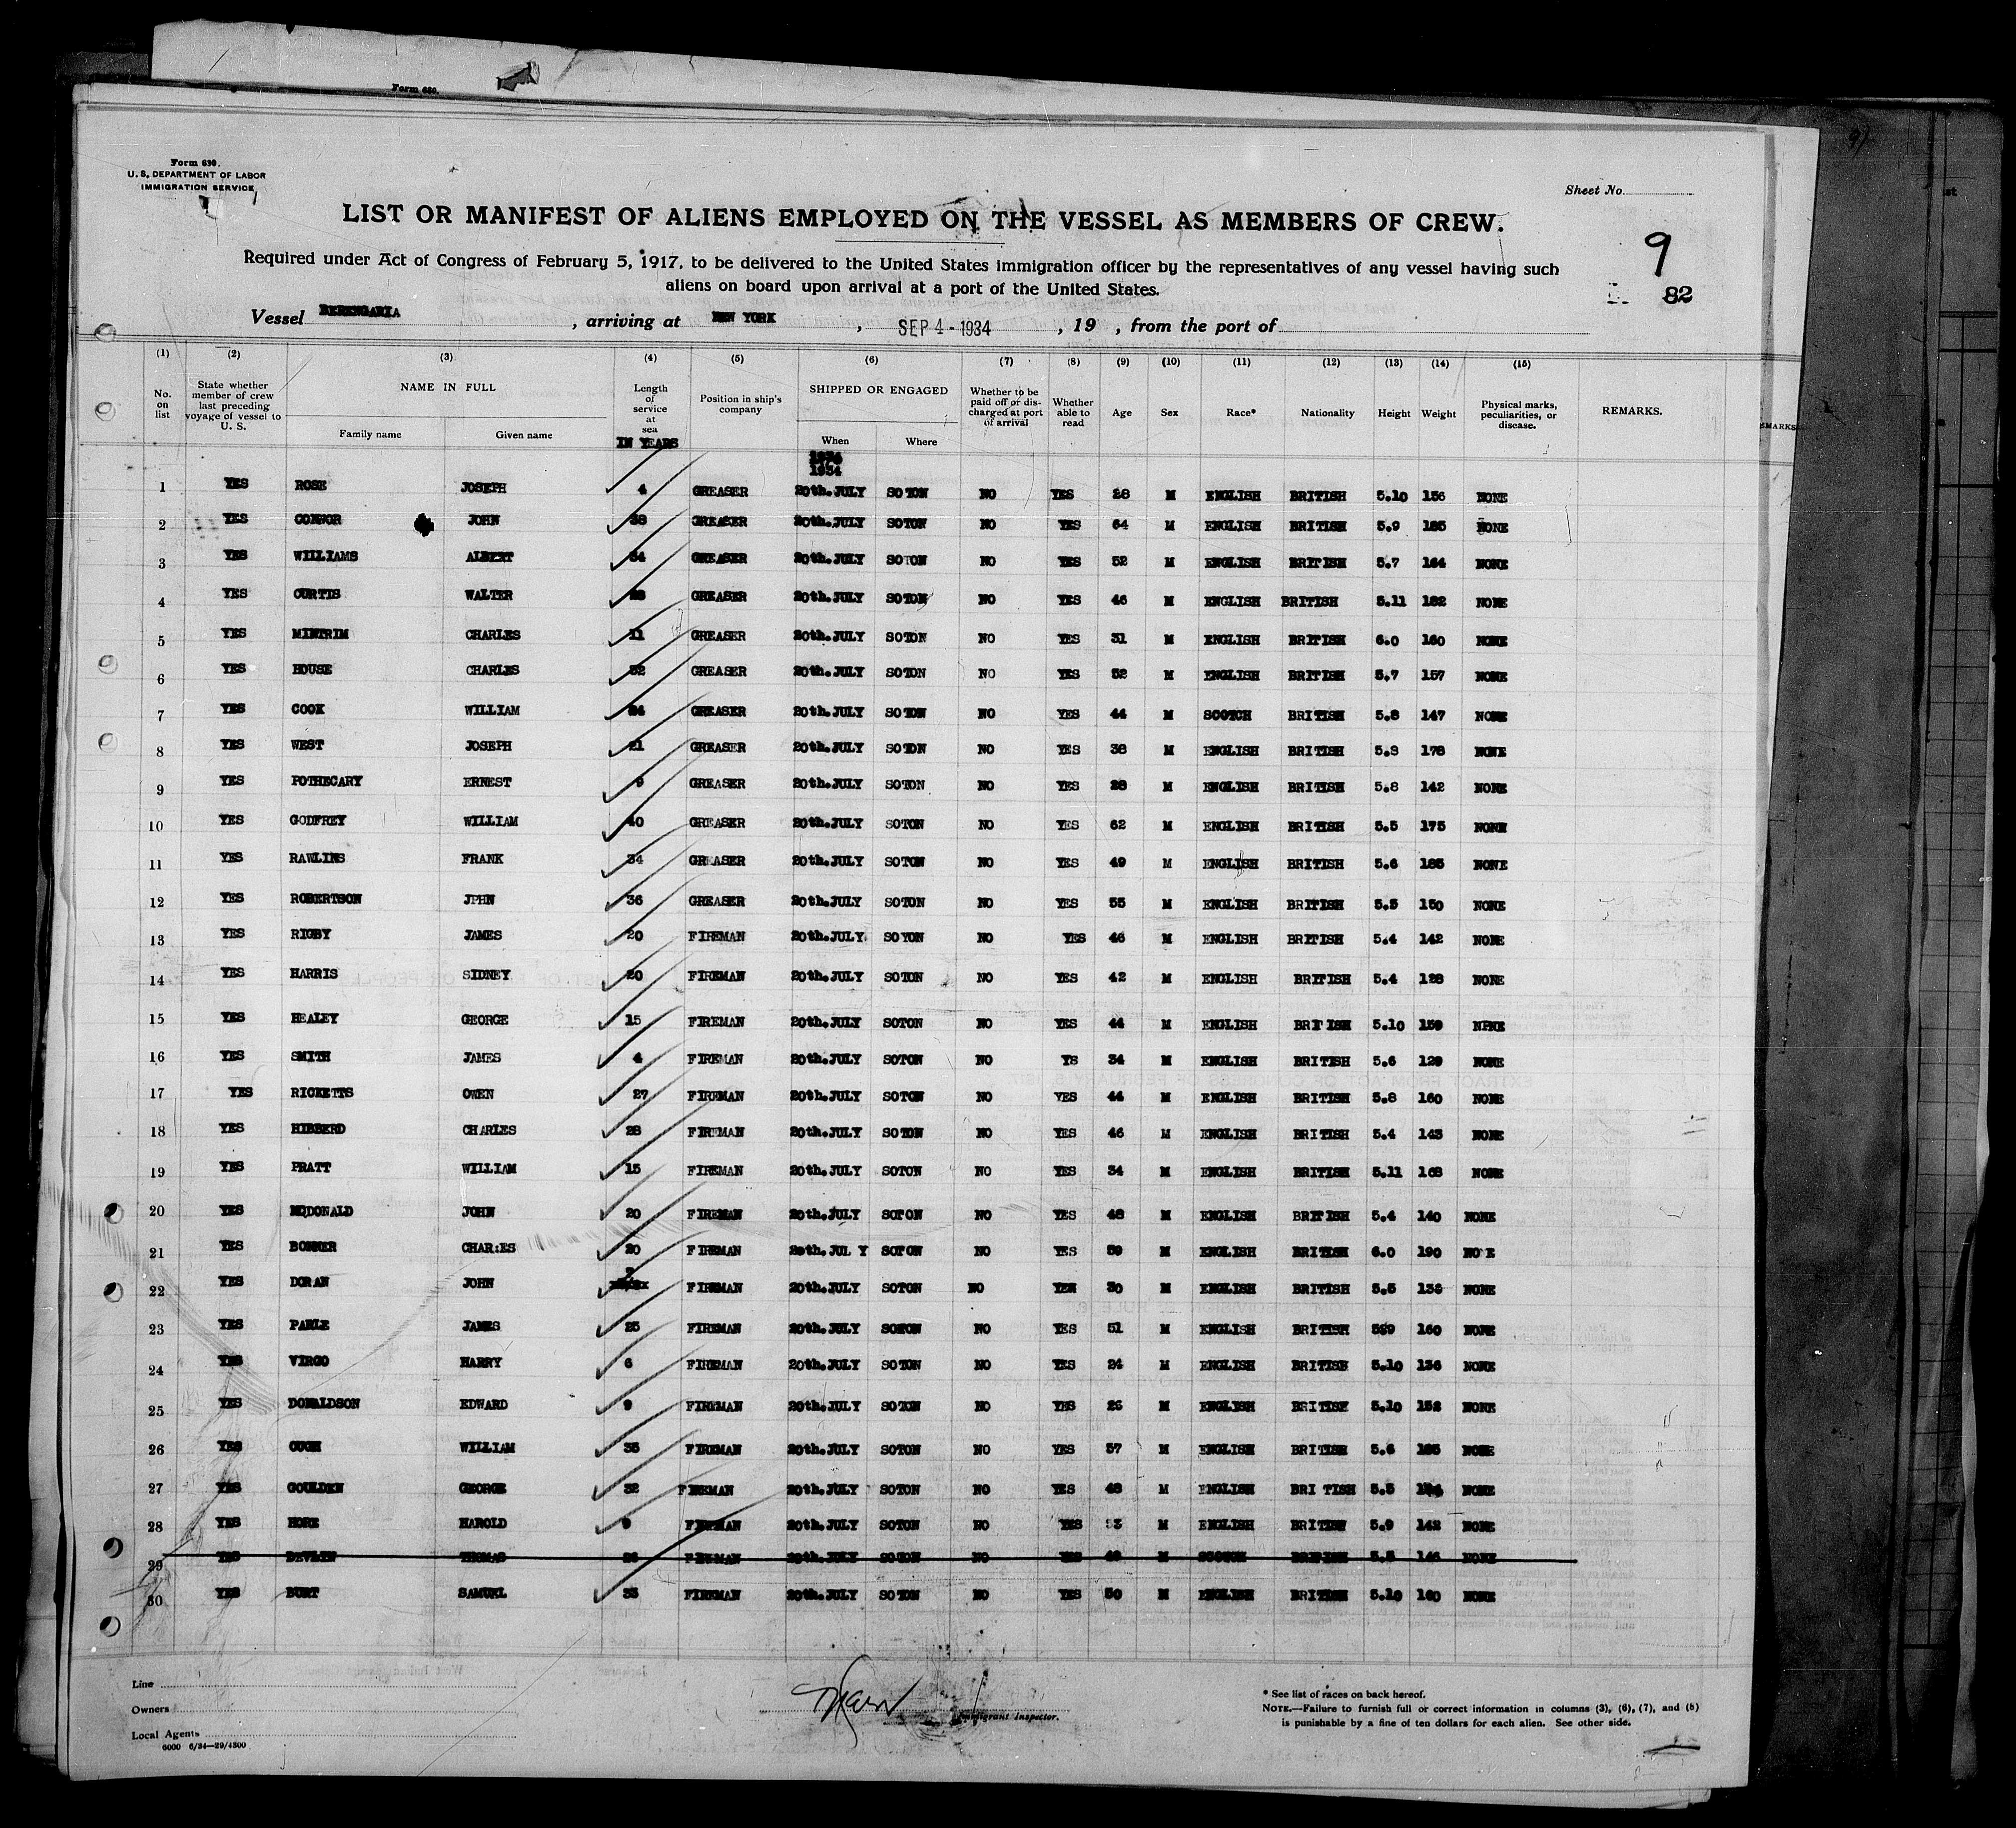 Form 680.
Form 680.
U. S. DEPARTMENT OF LABOR
IMMIGRATION SERVICE
Sheet No.
LIST OR MANIFEST OF ALIENS EMPLOYED ON THE VESSEL AS MEMBERS OF CREW.
Required under Act of Congress of February 5, 1917, to be delivered to the United States immigration officer by the representatives of any vessel having such
aliens on board upon arrival at a port of the United States.
9
82
Vessel BERENGARIA, arriving at NEW YORK, SEP 4 - 1934, 19 , from the port of
(1) (2) (3) (4) (5) (6) (7) (8) (9) (10) (11) (12) (13) (14) (15)
No. on list State whether member of crew last preceding voyage of vessel to U. S. NAME IN FULL Family name Given name Length of service at sea IN YEARS Position in ship's company SHIPPED OR ENGAGED When Where Whether to be paid off or discharged at port of arrival Whether able to read Age Sex Race* Nationality Height Weight Physical marks, peculiarities, or disease. REMARKS.
1934
1934
1 YES ROSE JOSEPH 4 GREASER 20th.JULY SOTON NO YES 28 M ENGLISH BRITISH 5.10 156 NONE
2 YES CONNOR JOHN 38 GREASER 20th.JULY SOTON NO YES 64 M ENGLISH BRITISH 5.9 185 NONE
3 YES WILLIAMS ALBERT 34 GREASER 20th.JULY SOTON NO YES 52 M ENGLISH BRITISH 5.7 164 NONE
4 YES CURTIS WALTER 28 GREASER 20th.JULY SOTON NO YES 46 M ENGLISH BRITISH 5.11 182 NONE
5 YES MINTRIM CHARLES 11 GREASER 20th.JULY SOTON NO YES 31 M ENGLISH BRITISH 6.0 160 NONE
6 YES HOUSE CHARLES 32 GREASER 20th.JULY SOTON NO YES 52 M ENGLISH BRITISH 5.7 157 NONE
7 YES COOK WILLIAM 24 GREASER 20th.JULY SOTON NO YES 44 M SCOTCH BRITISH 5.8 147 NONE
8 YES WEST JOSEPH 21 GREASER 20th.JULY SOTON NO YES 38 M ENGLISH BRITISH 5.8 178 NONE
9 YES POTHECARY ERNEST 9 GREASER 20th.JULY SOTON NO YES 28 M ENGLISH BRITISH 5.8 142 NONE
10 YES GODFREY WILLIAM 40 GREASER 20th.JULY SOTON NO YES 62 M ENGLISH BRITISH 5.5 175 NONE
11 YES RAWLINS FRANK 34 GREASER 20th.JULY SOTON NO YES 49 M ENGLISH BRITISH 5.6 185 NONE
12 YES ROBERTSON JPHN 36 GREASER 20th.JULY SOTON NO YES 55 M ENGLISH BRITISH 5.5 150 NONE
13 YES RIGBY JAMES 20 FIREMAN 20th.JULY SOYON NO YES 46 M ENGLISH BRITISH 5.4 142 NONE
14 YES HARRIS SIDNEY 20 FIREMAN 20th.JULY SOTON NO YES 42 M ENGLISH BRITISH 5.4 128 NONE
15 YES HEALEY GEORGE 15 FIREMAN 20th.JULY SOTON NO YES 44 M ENGLISH BRITISH 5.10 159 NPNE
16 YES SMITH JAMES 4 FIREMAN 20th.JULY SOTON NO YS 34 M ENGLISH BRITISH 5.6 129 NONE
17 YES RICKETTS OWEN 27 FIREMAN 20th.JULY SOTON NO YES 44 M ENGLISH BRITISH 5.8 160 NONE
18 YES HIBBERD CHARLES 28 FIREMAN 20th.JULY SOTON NO YES 46 M ENGLISH BRITISH 5.4 143 NONE
19 YES PRATT WILLIAM 15 FIREMAN 20th.JULY SOTON NO YES 34 M ENGLISH BRITISH 5.11 168 NONE
20 YES MCDONALD JOHN 20 FIREMAN 20th.JULY SOTON NO YES 48 M ENGLISH BRITISH 5.4 140 NONE
21 YES BONNER CHAR:ES 20 FIREMAN 20th.JUL Y SOTON NO YES 59 M ENGLISH BRITISH 6.0 190 NO E
22 YES DORAN JOHN FIREMAN 20th.JULY SOTON NO YES 30 M ENGLISH BRITISH 5.5 NONE
23 YES PARLE JAMES 25 FIREMAN 20th.JULY SOTON NO YES 51 M ENGLISH BRITISH 160 NONE
24 YES VIRGO HARRY 6 FIREMAN 20th.JULY SOTON NO YES 24 M ENGLISH BRITISH 5.10 136 NONE
25 YES DONALDSON EDWARD 9 FIREMAN 20th.JULY SOTON NO YES 26 M ENGLISH BRITISH 5.10 152 NONE
26 YES OUGH WILLIAM 35 FIREMAN 20th.JULY SOTON NO YES 57 M ENGLISH BRITISH 5.6 NONE
27 YES GOULDEN GEORGE 32 FIREMAN 20th.JULY SOTON NO YES 48 M ENGLISH BRI TISH 5.5 NONE
28 YES HORE HAROLD 9 FIREMAN 20th.JULY SOTON NO YES M ENGLISH BRITISH 5.9 142 NONE
29 YES DEVLIN THOMAS FIREMAN 20th.JULY SOTON NO YES M SCOTCH BRITISH 5.5 146 NONE
30 YES BURT SAMUEL 33 FIREMAN 20th.JULY SOTON NO YES 50 M ENGLISH BRITISH 5.10 160 NONE
Line
Owners
Local Agents
6000 6/34—29/4300
Immigrant Inspector.
* See list of races on back hereof.
NOTE.—Failure to furnish full or correct information in columns (3), (6), (7), and (8)
is punishable by a fine of ten dollars for each alien. See other side.